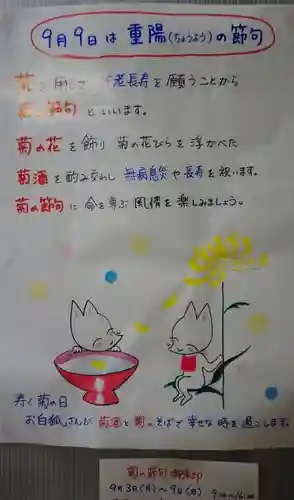 9月9日は 重陽(ちょうよう)の節句
花を用いて 不老長寿を願うことから
菊の節句 といいます。
菊の花 を飾り 菊の花びらを浮かべた
菊酒を酌み交わし 無病息災や長寿を祝います。
菊の節句に 命を尊ぶ風情を楽しみましょう。
寿く菊の日
お白狐さんが 菊酒と菊のそばで幸せな時を過ごします。
菊の節句
9月3日(月)〜9日(日)